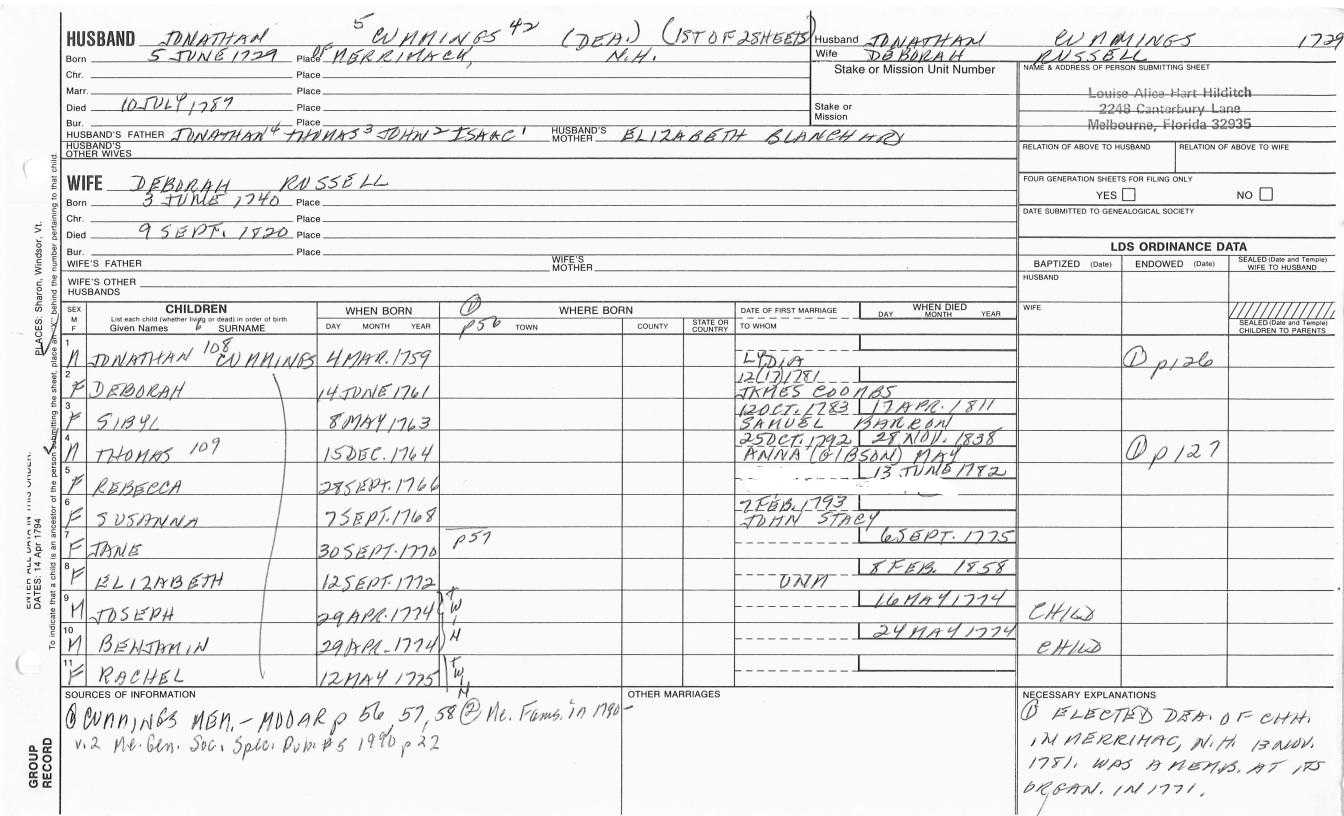 HUSBAND JONATHAN 5 CUMMINGS 42 (DEA.) (1ST OF 2 SHEETS)
Husband JONATHAN CUMMINGS 1729
Wife DEBORAH RUSSELL
Born 5 JUNE 1729 Place OF MERRIMACK, N.H.
Chr. Place
Marr. Place
Died 10 JULY, 1787 Place
Bur. Place
Stake or Mission Unit Number
Stake or
Mission
NAME & ADDRESS OF PERSON SUBMITTING SHEET
Louise Alice Hart Hilditch
2248 Canterbury Lane
Melbourne, Florida 32935
HUSBAND'S FATHER JONATHAN4 THOMAS3 JOHN2 ISAAC1 HUSBAND'S MOTHER ELIZABETH BLANCHARD
HUSBAND'S OTHER WIVES
RELATION OF ABOVE TO HUSBAND RELATION OF ABOVE TO WIFE
WIFE DEBORAH RUSSELL
Born 3 JUNE 1740 Place
Chr. Place
Died 9 SEPT. 1820 Place
Bur. Place
FOUR GENERATION SHEETS FOR FILING ONLY
YES NO
DATE SUBMITTED TO GENEALOGICAL SOCIETY
WIFE'S FATHER WIFE'S MOTHER
WIFE'S OTHER HUSBANDS
LDS ORDINANCE DATA
BAPTIZED (Date) ENDOWED (Date) SEALED (Date and Temple) WIFE TO HUSBAND
HUSBAND
WIFE
SEALED (Date and Temple) CHILDREN TO PARENTS
SEX M F
CHILDREN
List each child (whether living or dead) in order of birth
Given Names 6 SURNAME
WHEN BORN
DAY MONTH YEAR
① p56
WHERE BORN
TOWN COUNTY STATE OR COUNTRY
DATE OF FIRST MARRIAGE
TO WHOM
WHEN DIED
DAY MONTH YEAR
1 M JONATHAN 108 CUMMINGS 4 MAR. 1759 LYDIA ① p126
2 F DEBORAH 14 JUNE 1761 12(17)1781 JAMES COOMBS
3 F SIBYL 8 MAY 1763 12 OCT. 1783 17 APR. 1811 SAMUEL BARRON
4 M THOMAS 109 15 DEC. 1764 25 OCT. 1792 28 NOV. 1838 ANNA (GIBSON) MAY ① p127
5 F REBECCA 28 SEPT. 1766 13 JUNE 1782
6 F SUSANNA 7 SEPT. 1768 7 FEB. 1793 JOHN STACY
7 F JANE 30 SEPT. 1770 p57 6 SEPT. 1775
8 F ELIZABETH 12 SEPT. 1772 UNM 8 FEB. 1858
9 M JOSEPH 29 APR. 1774 TWIN 16 MAY 1774 CHILD
10 M BENJAMIN 29 APR. 1774 24 MAY 1774 CHILD
11 F RACHEL 12 MAY 1775 TWIN
SOURCES OF INFORMATION
① CUMMINGS MEM. - MOOAR p 56, 57, 58 ② Me. Fams. in 1790 -
v. 2 Me. Gen. Soc. Spec. Pub. #5 1990 p 22
OTHER MARRIAGES
NECESSARY EXPLANATIONS
① ELECTED DEA. OF CHH.
IN MERRIMAC, N.H. 13 NOV.
1781. WAS A MEMB. AT ITS
ORGAN. IN 1771.
PLACES: Sharon, Windsor, Vt.
ENTER ALL DATA IN THIS ORDER:
DATES: 14 Apr 1794
To indicate that a child is an ancestor of the person submitting the sheet, place an behind the number pertaining to that child.
GROUP
RECORD